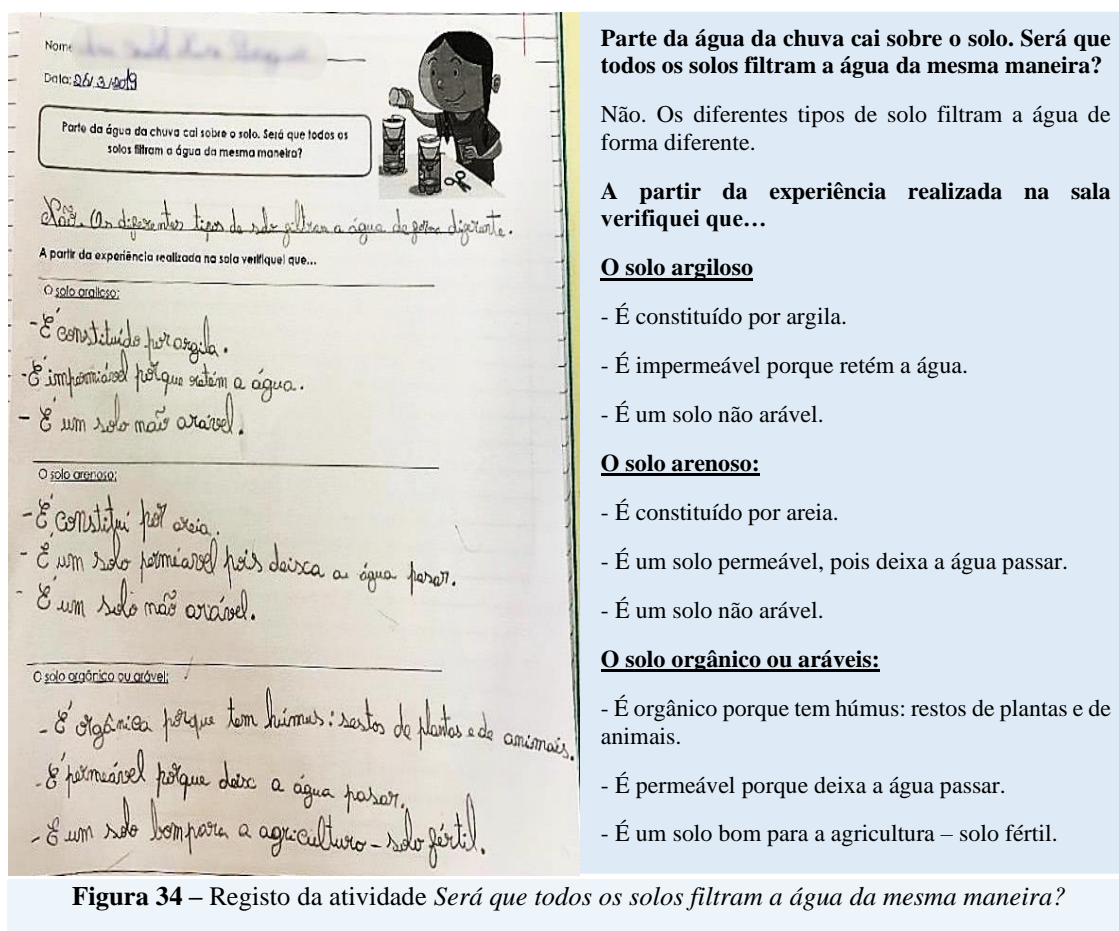 Nome
Data: 26/3/2019
Parte da água da chuva cai sobre o solo. Será que todos os
solos filtram a água da mesma maneira?
Não. Os diferentes tipos de solo filtram a água de forma diferente.
A partir da experiência realizada na sala verifiquei que...
O solo argiloso:
- É constituído por argila.
- É impermiável porque retém a água.
- É um solo não arável.
O solo arenoso:
- É constituí por areia.
- É um solo permiável pois deisca a água pasar.
- É um solo não arável.
O solo orgânico ou arável:
- É orgânica porque tem húmus: restos de plantas e de animais.
- É permeável porque deixc a água pasar.
- É um solo bompara a agricultura - solo fértil.
Parte da água da chuva cai sobre o solo. Será que
todos os solos filtram a água da mesma maneira?
Não. Os diferentes tipos de solo filtram a água de
forma diferente.
A partir da experiência realizada na sala
verifiquei que…
O solo argiloso
- É constituído por argila.
- É impermeável porque retém a água.
- É um solo não arável.
O solo arenoso:
- É constituído por areia.
- É um solo permeável, pois deixa a água passar.
- É um solo não arável.
O solo orgânico ou aráveis:
- É orgânico porque tem húmus: restos de plantas e de
animais.
- É permeável porque deixa a água passar.
- É um solo bom para a agricultura – solo fértil.
Figura 34 – Registo da atividade Será que todos os solos filtram a água da mesma maneira?